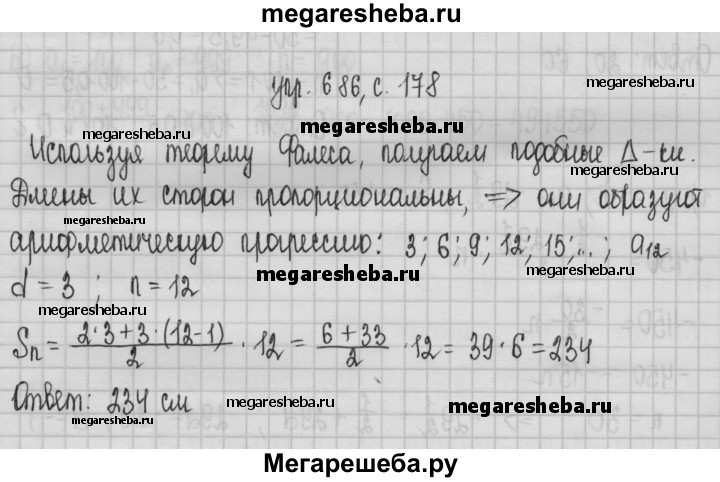 megaresheba.ru
упр. 686, с. 178
megaresheba.ru
megaresheba.ru
megaresheba.ru
Используя теорему Фалеса, получаем подобные Δ-ки.
megaresheba.ru
Длины их сторон пропорциональны, => они образуют
megaresheba.ru
арифметическую прогрессию: 3; 6; 9; 12; 15;...; a12
megaresheba.ru
megaresheba.ru
d = 3 ; n = 12
megaresheba.ru
Sn = 2·3+3·(12-1)/2 · 12 = 6+33/2 · 12 = 39 · 6 = 234
megaresheba.ru
megaresheba.ru
Ответ: 234 см
megaresheba.ru
megaresheba.ru
megaresheba.ru
Мегарешеба.ру